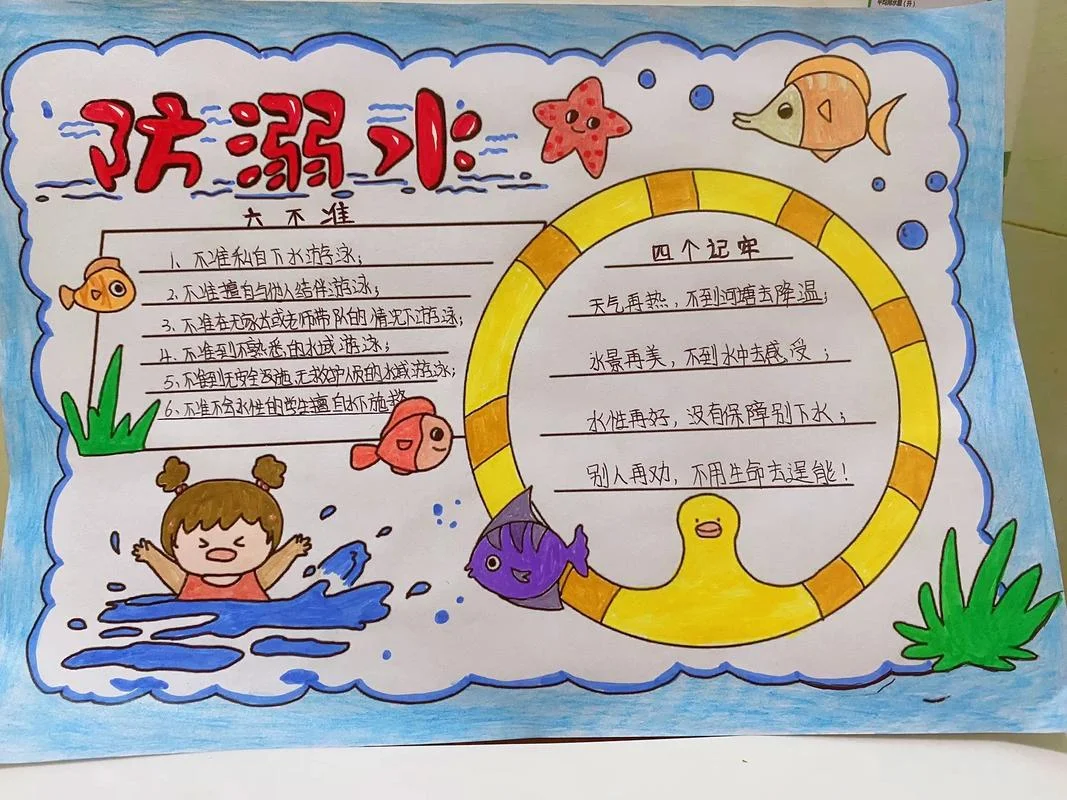 防溺水
六不准
1、不准私自下水游泳;
2、不准擅自与他人结伴游泳;
3、不准在无家长或老师带队的情况下游泳;
4、不准到不熟悉的水域游泳;
5、不准到无安全设施、无救护人员的水域游泳;
6、不准不会水性的学生擅自水下施救
四个记牢
天气再热，不到河塘去降温;
水景再美，不到水中去感受;
水性再好，没有保障别下水;
别人再劝，不用生命去逞能!